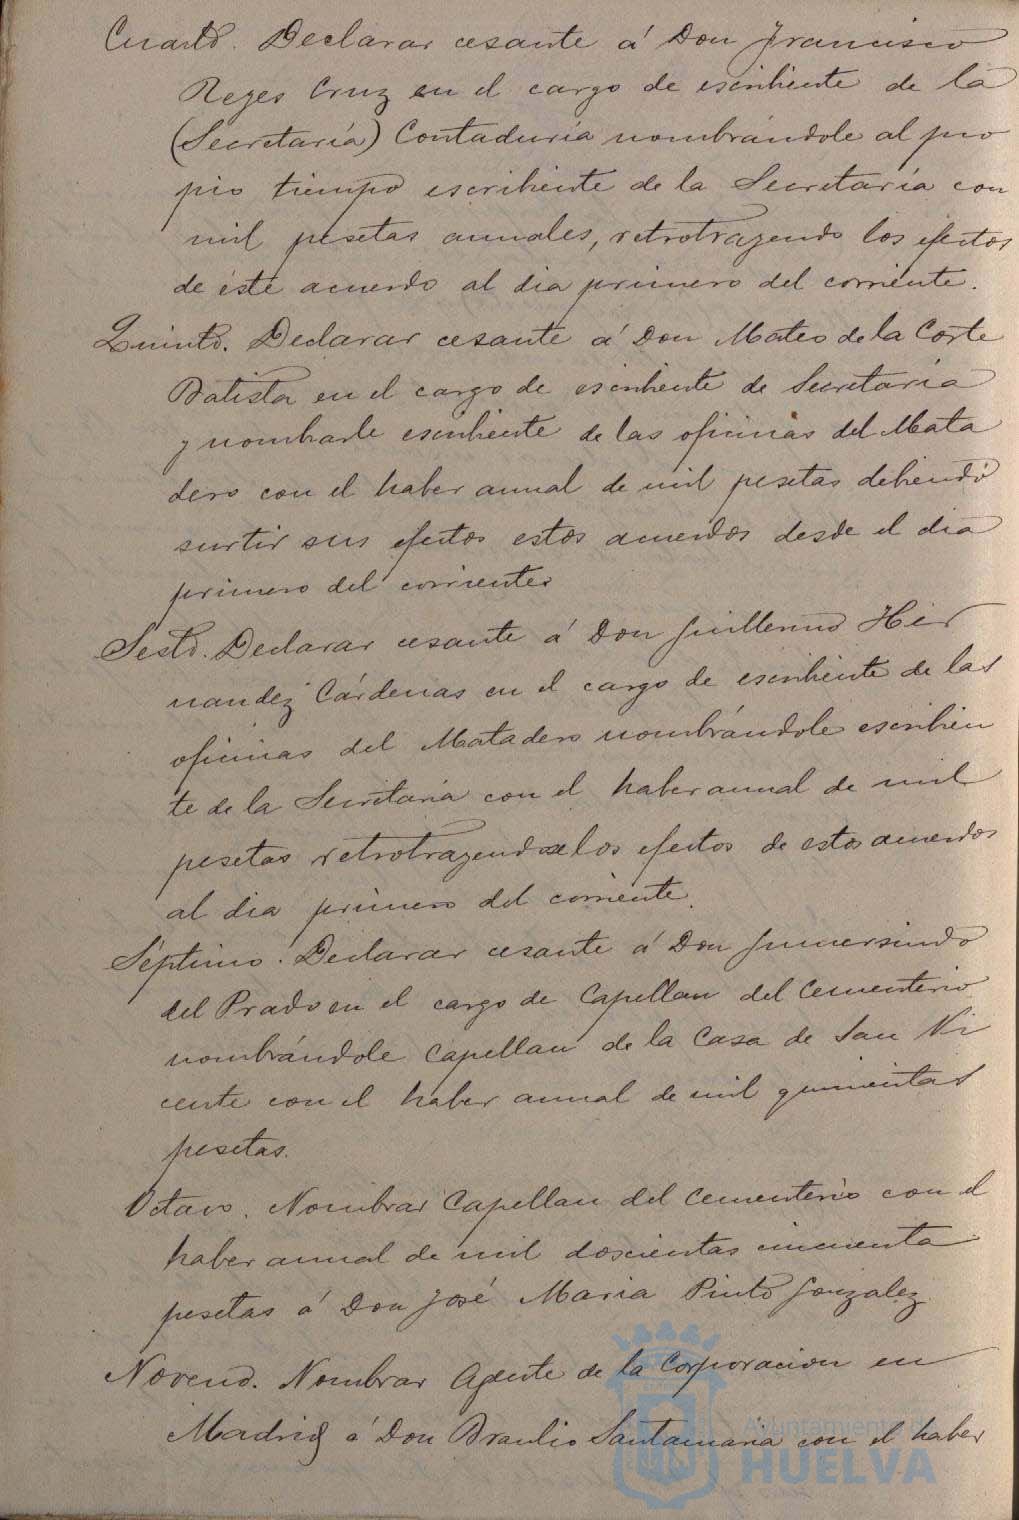 Cuarto. Declarar cesante á Don Francisco
Reyes Cruz en el cargo de escribiente de la
(Secretaría) Contaduría nombrándole al pro
pio tiempo escribiente de la Secretaría con
mil pesetas anuales, retrotrayendo los efectos
de éste acuerdo al dia primero del corriente.
Quinto. Declarar cesante á Don Mateo de la Corte
Batista en el cargo de escribiente de Secretaría
y nombrarle escribiente de las oficinas del Mata
dero con el haber annal de mil pesetas debiendo
surtir sus efectos estos acuerdos desde el dia
primero del corriente.
Sesto. Declarar cesante á Don Guillermo Her
nandez Cárdenas en el cargo de escribiente de las
oficinas del Matadero nombrándole escribien
te de la Secretaria con el haber annal de mil
pesetas retrotrayendose los efectos de estos acuerdos
al dia primero del corriente.
Séptimo. Declarar cesante á Don Gumersindo
del Prado en el cargo de Capellan del Cementerio
nombrándole Capellan de la Casa de San Vi
cente con el haber annal de mil quinientas
pesetas.
Octavo. Nombrar Capellan del Cementerio con el
haber annal de mil doscientas cincuenta
pesetas á Don José Maria Pinto Gonzalez
Noveno. Nombrar Agente de la Corporacion en
Madrid á Don Braulio Santamaria con el haber
Ayuntamiento de
HUELVA